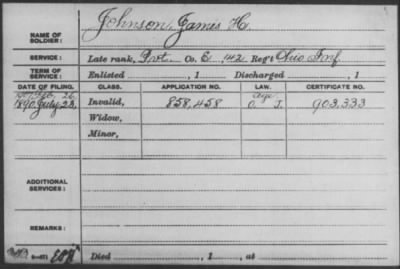 Johnson, James H.
NAME OF SOLDIER:
SERVICE: Late rank, Pvt. Co. E, 42 Reg't Ohio Inf.
TERM OF SERVICE: Enlisted , 1 Discharged , 1
DATE OF FILING. CLASS. APPLICATION NO. LAW. CERTIFICATE NO.
1890, July 23, Invalid, 858,458 O. J. 903,333
Widow,
Minor,
ADDITIONAL SERVICES:
REMARKS:
Died , 1 , at